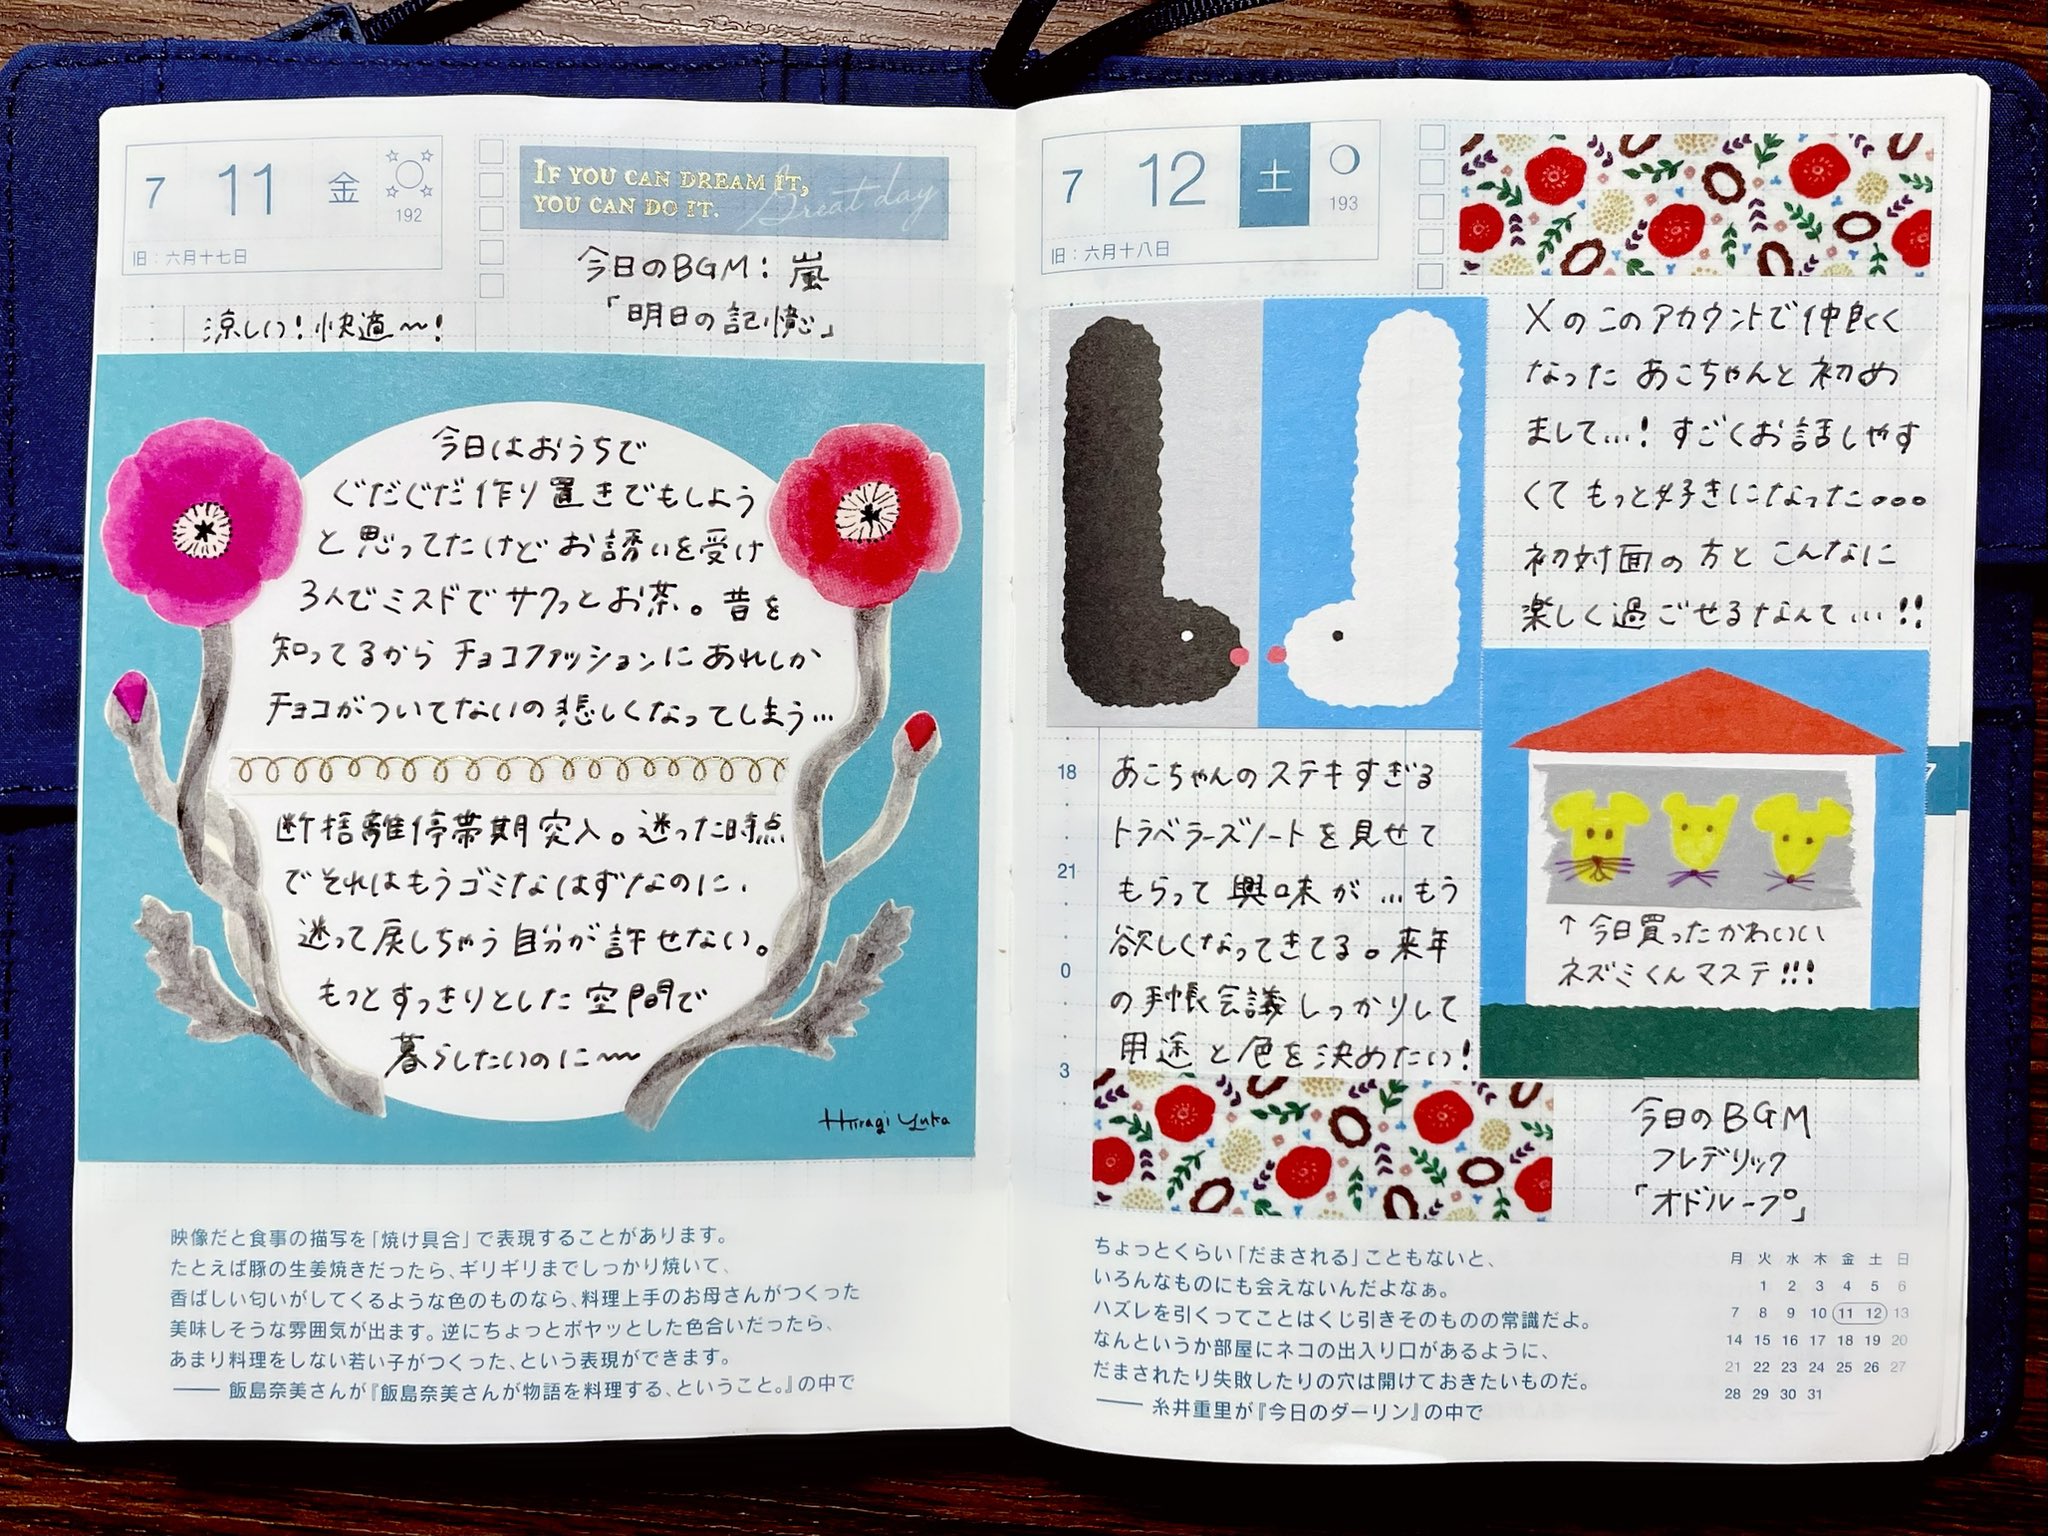 7 11 金
192
旧：六月十七日
IF YOU CAN DREAM IT,
YOU CAN DO IT.
Great day
今日のBGM：嵐
「明日の記憶」
涼しい！快適〜！
今日はおうちで
ぐだぐだ作り置きでもしよう
と思ってたけどお誘いを受け
3人でミスドでサクっとお茶。昔を
知ってるからチョコファッションにあれしか
チョコがついてないの悲しくなってしまう…
断捨離停滞期突入。迷った時点
でそれはもうゴミなはずなのに、
迷って戻しちゃう自分が許せない。
もっとすっきりとした空間で
暮らしたいのに〜
Hiiragi Yuka
映像だと食事の描写を「焼け具合」で表現することがあります。
たとえば豚の生姜焼きだったら、ギリギリまでしっかり焼いて、
香ばしい匂いがしてくるような色のものなら、料理上手のお母さんがつくった
美味しそうな雰囲気が出ます。逆にちょっとボヤッとした色合いだったら、
あまり料理をしない若い子がつくった、という表現ができます。
—— 飯島奈美さんが『飯島奈美さんが物語を料理する、ということ。』の中で
7 12 土
193
旧：六月十八日
Xのこのアカウントで仲良く
なったあこちゃんと初め
まして…！すごくお話しやす
くてもっと好きになった。。。
初対面の方とこんなに
楽しく過ごせるなんて…!!
18
21
0
3
あこちゃんのステキすぎる
トラベラーズノートを見せて
もらって興味が…もう
欲しくなってきてる。来年
の手帳会議しっかりして
用途と色を決めたい！
↑今日買ったかわいい
ネズミくんマステ!!!
7
今日のBGM
フレデリック
「オドループ」
ちょっとくらい「だまされる」こともないと、
いろんなものにも会えないんだよなぁ。
ハズレを引くってことはくじ引きそのものの常識だよ。
なんというか部屋にネコの出入り口があるように、
だまされたり失敗したりの穴は開けておきたいものだ。
—— 糸井重里が『今日のダーリン』の中で
月 火 水 木 金 土 日
1 2 3 4 5 6
7 8 9 10 11 12 13
14 15 16 17 18 19 20
21 22 23 24 25 26 27
28 29 30 31